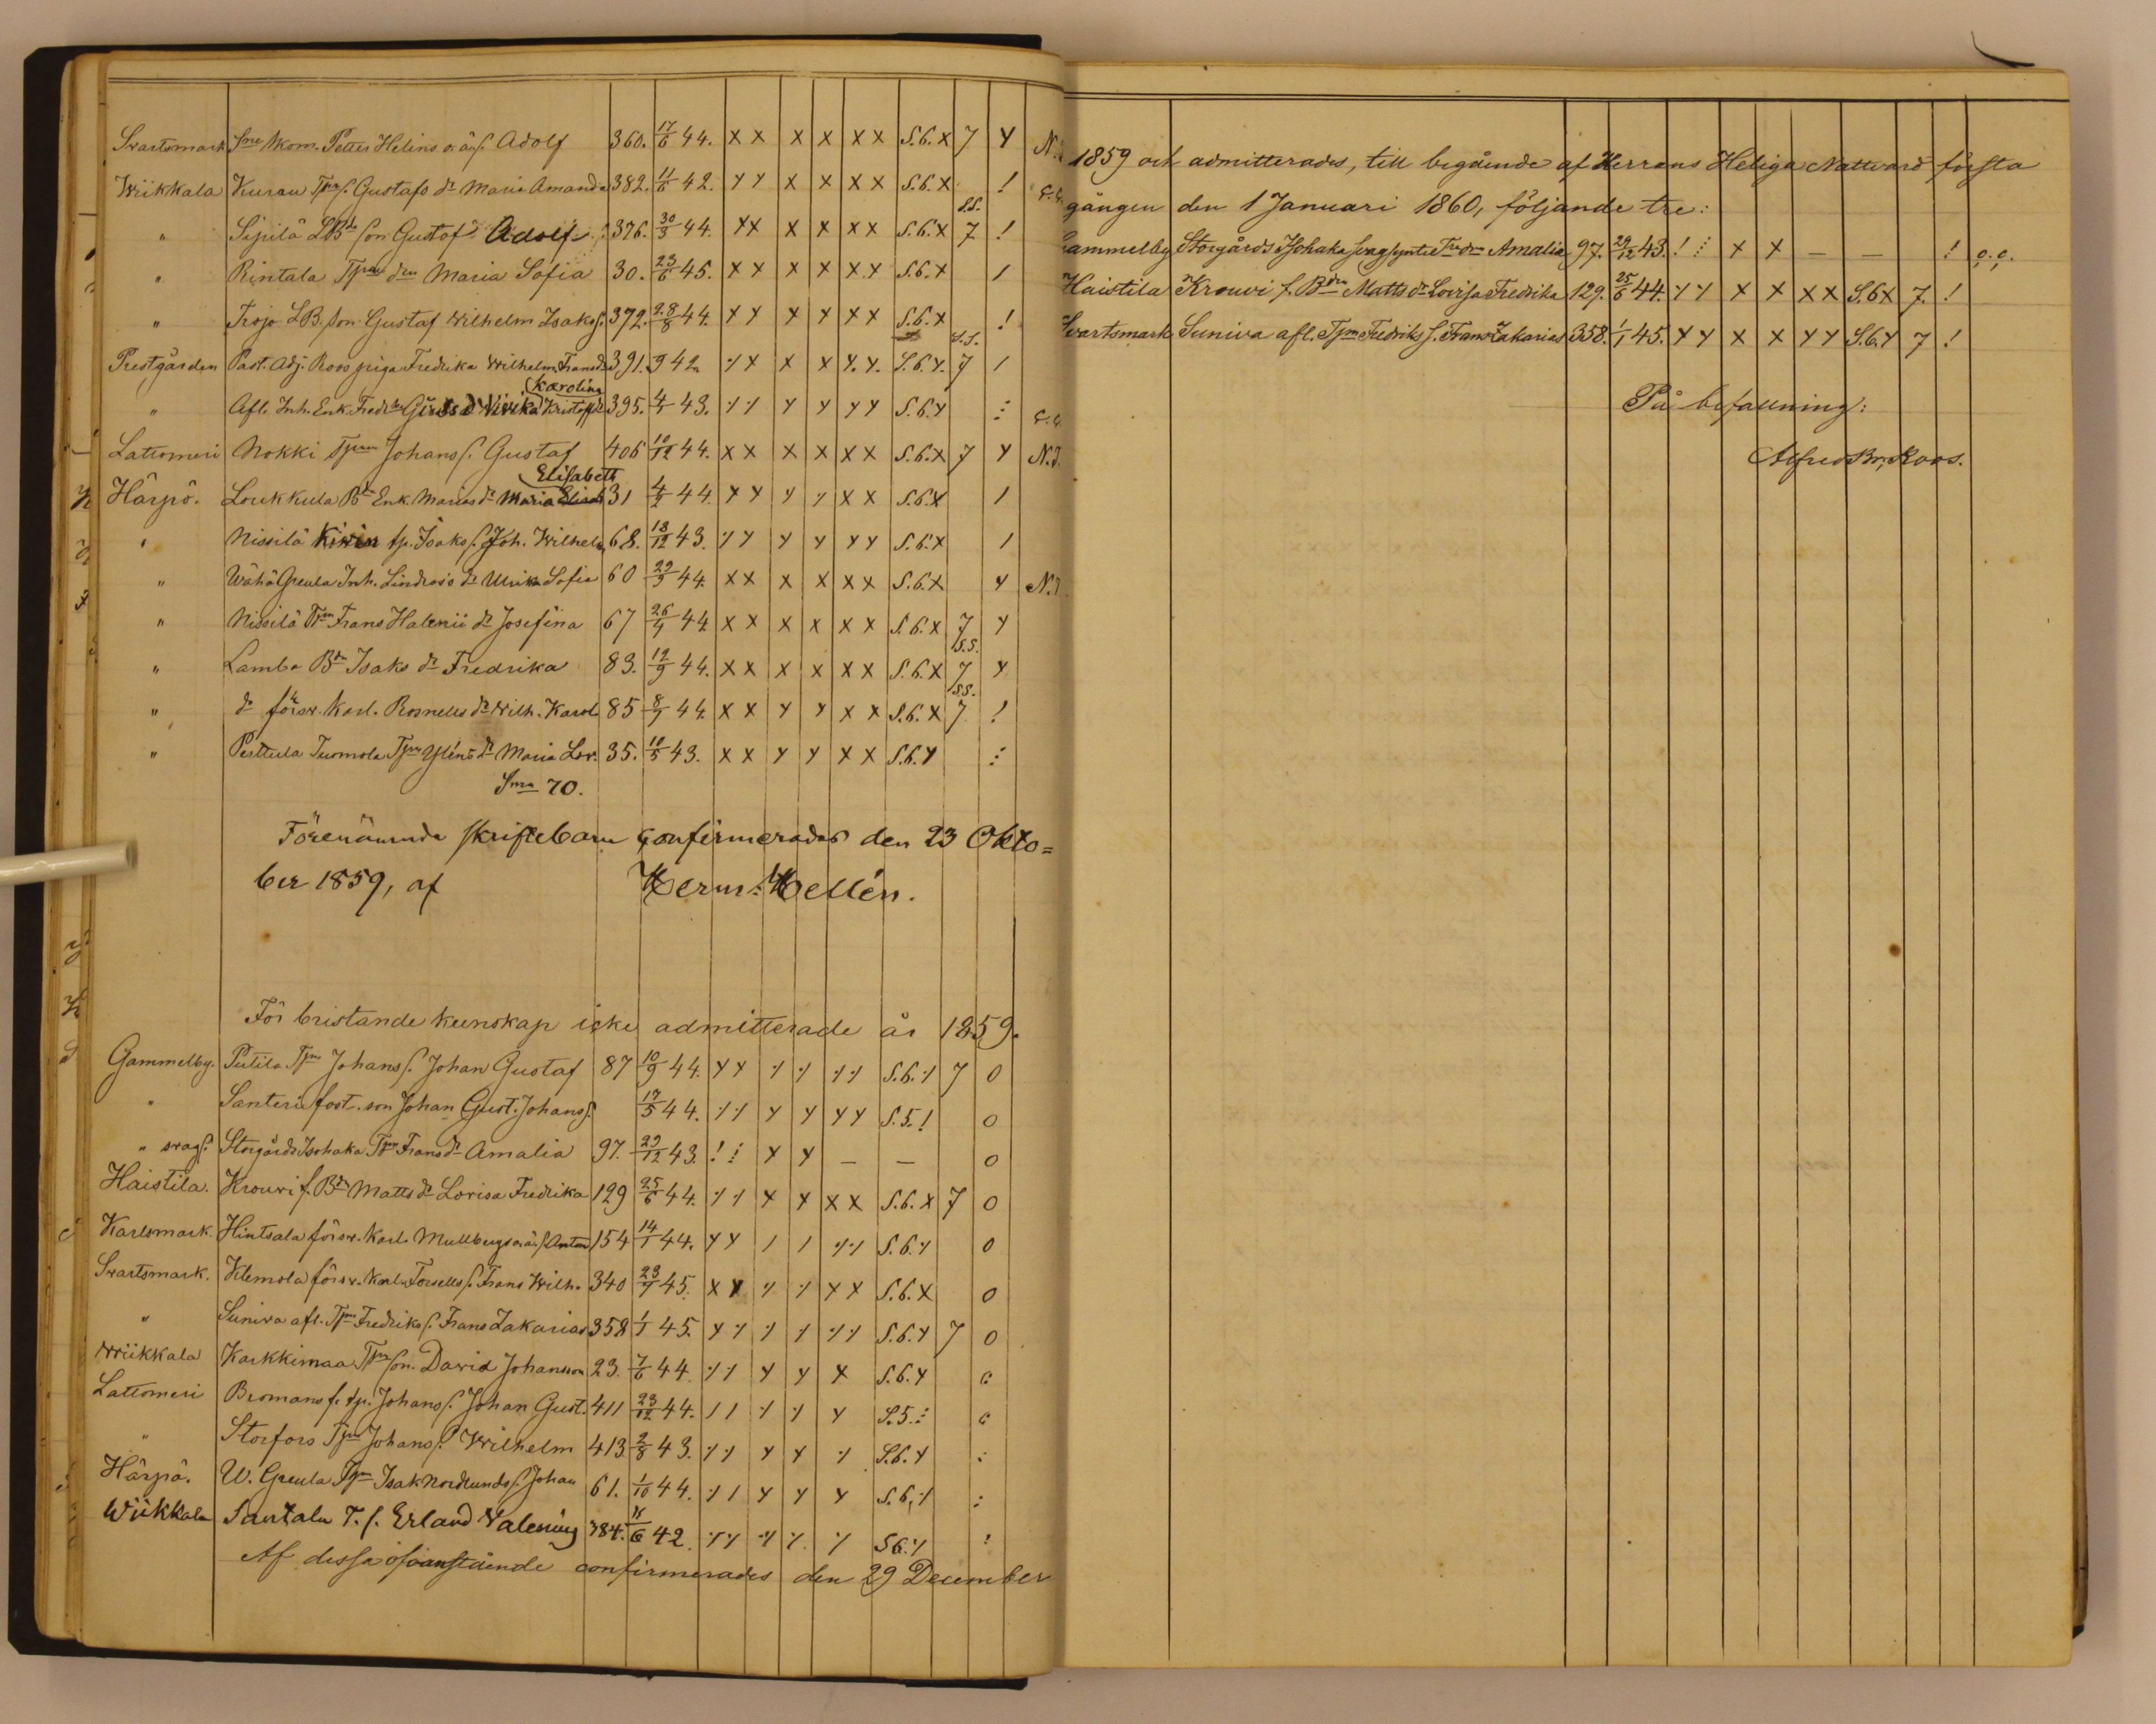 Svartsmark Sme Kom. Petter Helins o. äs. Adolf 360. 17/6 44. X X X X X X S.6.X 7 Y N.
Wiikkala Kurau Tpr s. Gustafs dr Maria Amanda 382. 11/6 42. Y Y X X X X S.6.X !
" Sipilä LBds son Gustaf Adolf 376. 30/3 44. Y X X X X X S.6.X 7 !
" Rintala Tpms dtr Maria Sofia 30. 23/6 45. X X X X X X S.6.X /
" Trojo LB. son Gustaf Wilhelm Isaks s. 372. 28/8 44. X Y X Y X X S.6.X !
Prestgården Past. Adj. Roos piga Fredrika Wilhelm. Fransdr 391. 9 42
" Afl. Inh. Enk. Fredr. Vivika Karolina Kristoffdr 395. 4/1 43. S.6.Y
Lattomeri Nokki Tpm Johans s. Gustaf 406 10/12 44. X X X X X X S.6.X 7 Y N.
Härpö. Loukkula Bds Enk. Marias dr Maria Elisabeth 31 4/2 44. S.6.X /
" Nissilä Kiwin tp. Isaks s. Joh. Wilhelm 68. 18/12 43. S.6.X /
" Wähä Greula Inh. Lindroos dr Ulrika Sofia 60 29/9 44. X X X X X X S.6.X Y N.
" Nissilä Tpm Frans Halenii dr Josefina 67 26/9 44. X X X X X X S.6.X 7 Y
" Lamba Bds Isaks dr Fredrika 83. 12/9 44. X X X X X X S.6.X 7 Y
" do försv. Karl. Rosnells dr Wilh. Karol. 85 8/9 44. X X Y Y X X S.6.X 7 !
" Perttula Tuomola Tpm Yléns dr Maria Lov. 35. 10/5 43. X X Y Y X X S.6.Y
Sma 70.
Förenämnda skriftebarn confirmerades den 23 Okto=
ber 1859, af Herm: Hellén.
För bristande kunskap icke admitterade år 1859.
Gammelby. Putila Tpm Johans s. Johan Gustaf 87 10/9 44. S.6. 7 0
" Santeri fost. son Johan Gust. Johans s. 17/5 44. S.5.! 0
" svags. Storgårds Isohaka Tpm Frans dr Amalia 97. 29/12 43. ! Y Y — — 0
Haistila. Krouvi s. Bds Matts dr Lovisa Fredrika 129 25/6 44. S.6.X 7 0
Karlsmark. Hintsala försv. Karl. Mullbergs o. äs. Anton 154 14/1 44. Y Y / / S.6. 0
Svartsmark. Klemola försv. Karl. Forsells s. Frans Wilh. 340 23/9 45. S.6.X 0
" Suniva afl. Tpm Fredriks s. Frans Zakarias 358 1/1 45. S.6.Y 7 0
Wiikkala Karkkimaa Tpm son. David Johansson 23. 7/6 44. Y Y X S.6.Y
Lattomeri Bromans s. tp. Johans s. Johan Gust. 411 23/12 44. S.5.
" Storfors Tpm Johans s. Wilhelm 413 2/8 43. S.6.Y
Härpö. W. Greula Tpm Isak Nordlunds s. Johan 61. 1/10 44. Y Y Y S.6.
Wiikkala Santalu T. s. Erland Valening 384. 11/6 42. S6. !
Af dessa ofvanstående confirmerades den 29 December
1859 och admitterades, till begående af Herrans Heliga Nattvard första
gången den 1 Januari 1860, följande tre:
Gammelby Storgårds Isohaka svagsynte Frs dr Amalia 97. 29/12 43. ! X X — — !
Haistila Krouvi s. Bds Matts dr Lovisa Fredrika 129. 25/6 44. Y Y X X X X S.6X 7. !
Svartsmark Suniva afl. Tpm Fredriks s. Frans Zakarias 358. 1/1 45. Y Y X X Y Y S.6.Y 7 !
På befallning:
Alfred Br. Roos.